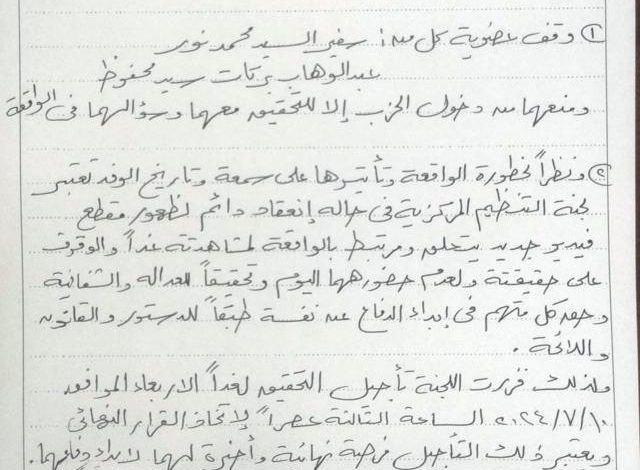 ① وقف عضوية كل من : سفير السيد محمد نور
عبد الوهاب بركات سيد محفوظ
ومنعهما من دخول الحزب إلا للتحقيق معهما وسؤالهما فى الواقعة
② ونظراً لخطورة الواقعة وتأثيرها على سمعة وتاريخ الوفد تعتبر
لجنة التنظيم المركزية فى حاله إنعقاد دائم لظهور مقطع
فيديو جديد يتعلق ومرتبط بالواقعة لمشاهدته غداً والوقوف
على حقيقتة ولعدم حضورهما اليوم وتحقيقاً للعداله والشفافية
وحق كل متهم فى إبداء الدفاع عن نفسة طبقاً للدستور والقانون
واللائحة .
ولذلك قررت اللجنة تأجيل التحقيق لغداً الاربعاء الموافق
٢٠٢٤/٧/١٠ الساعة الثالثة عصراً لإتخاذ القرار النهائى
ويعتبر ذلك التأجيل فرصة نهائية وأخيرة لهما لابداء دفاعهما.